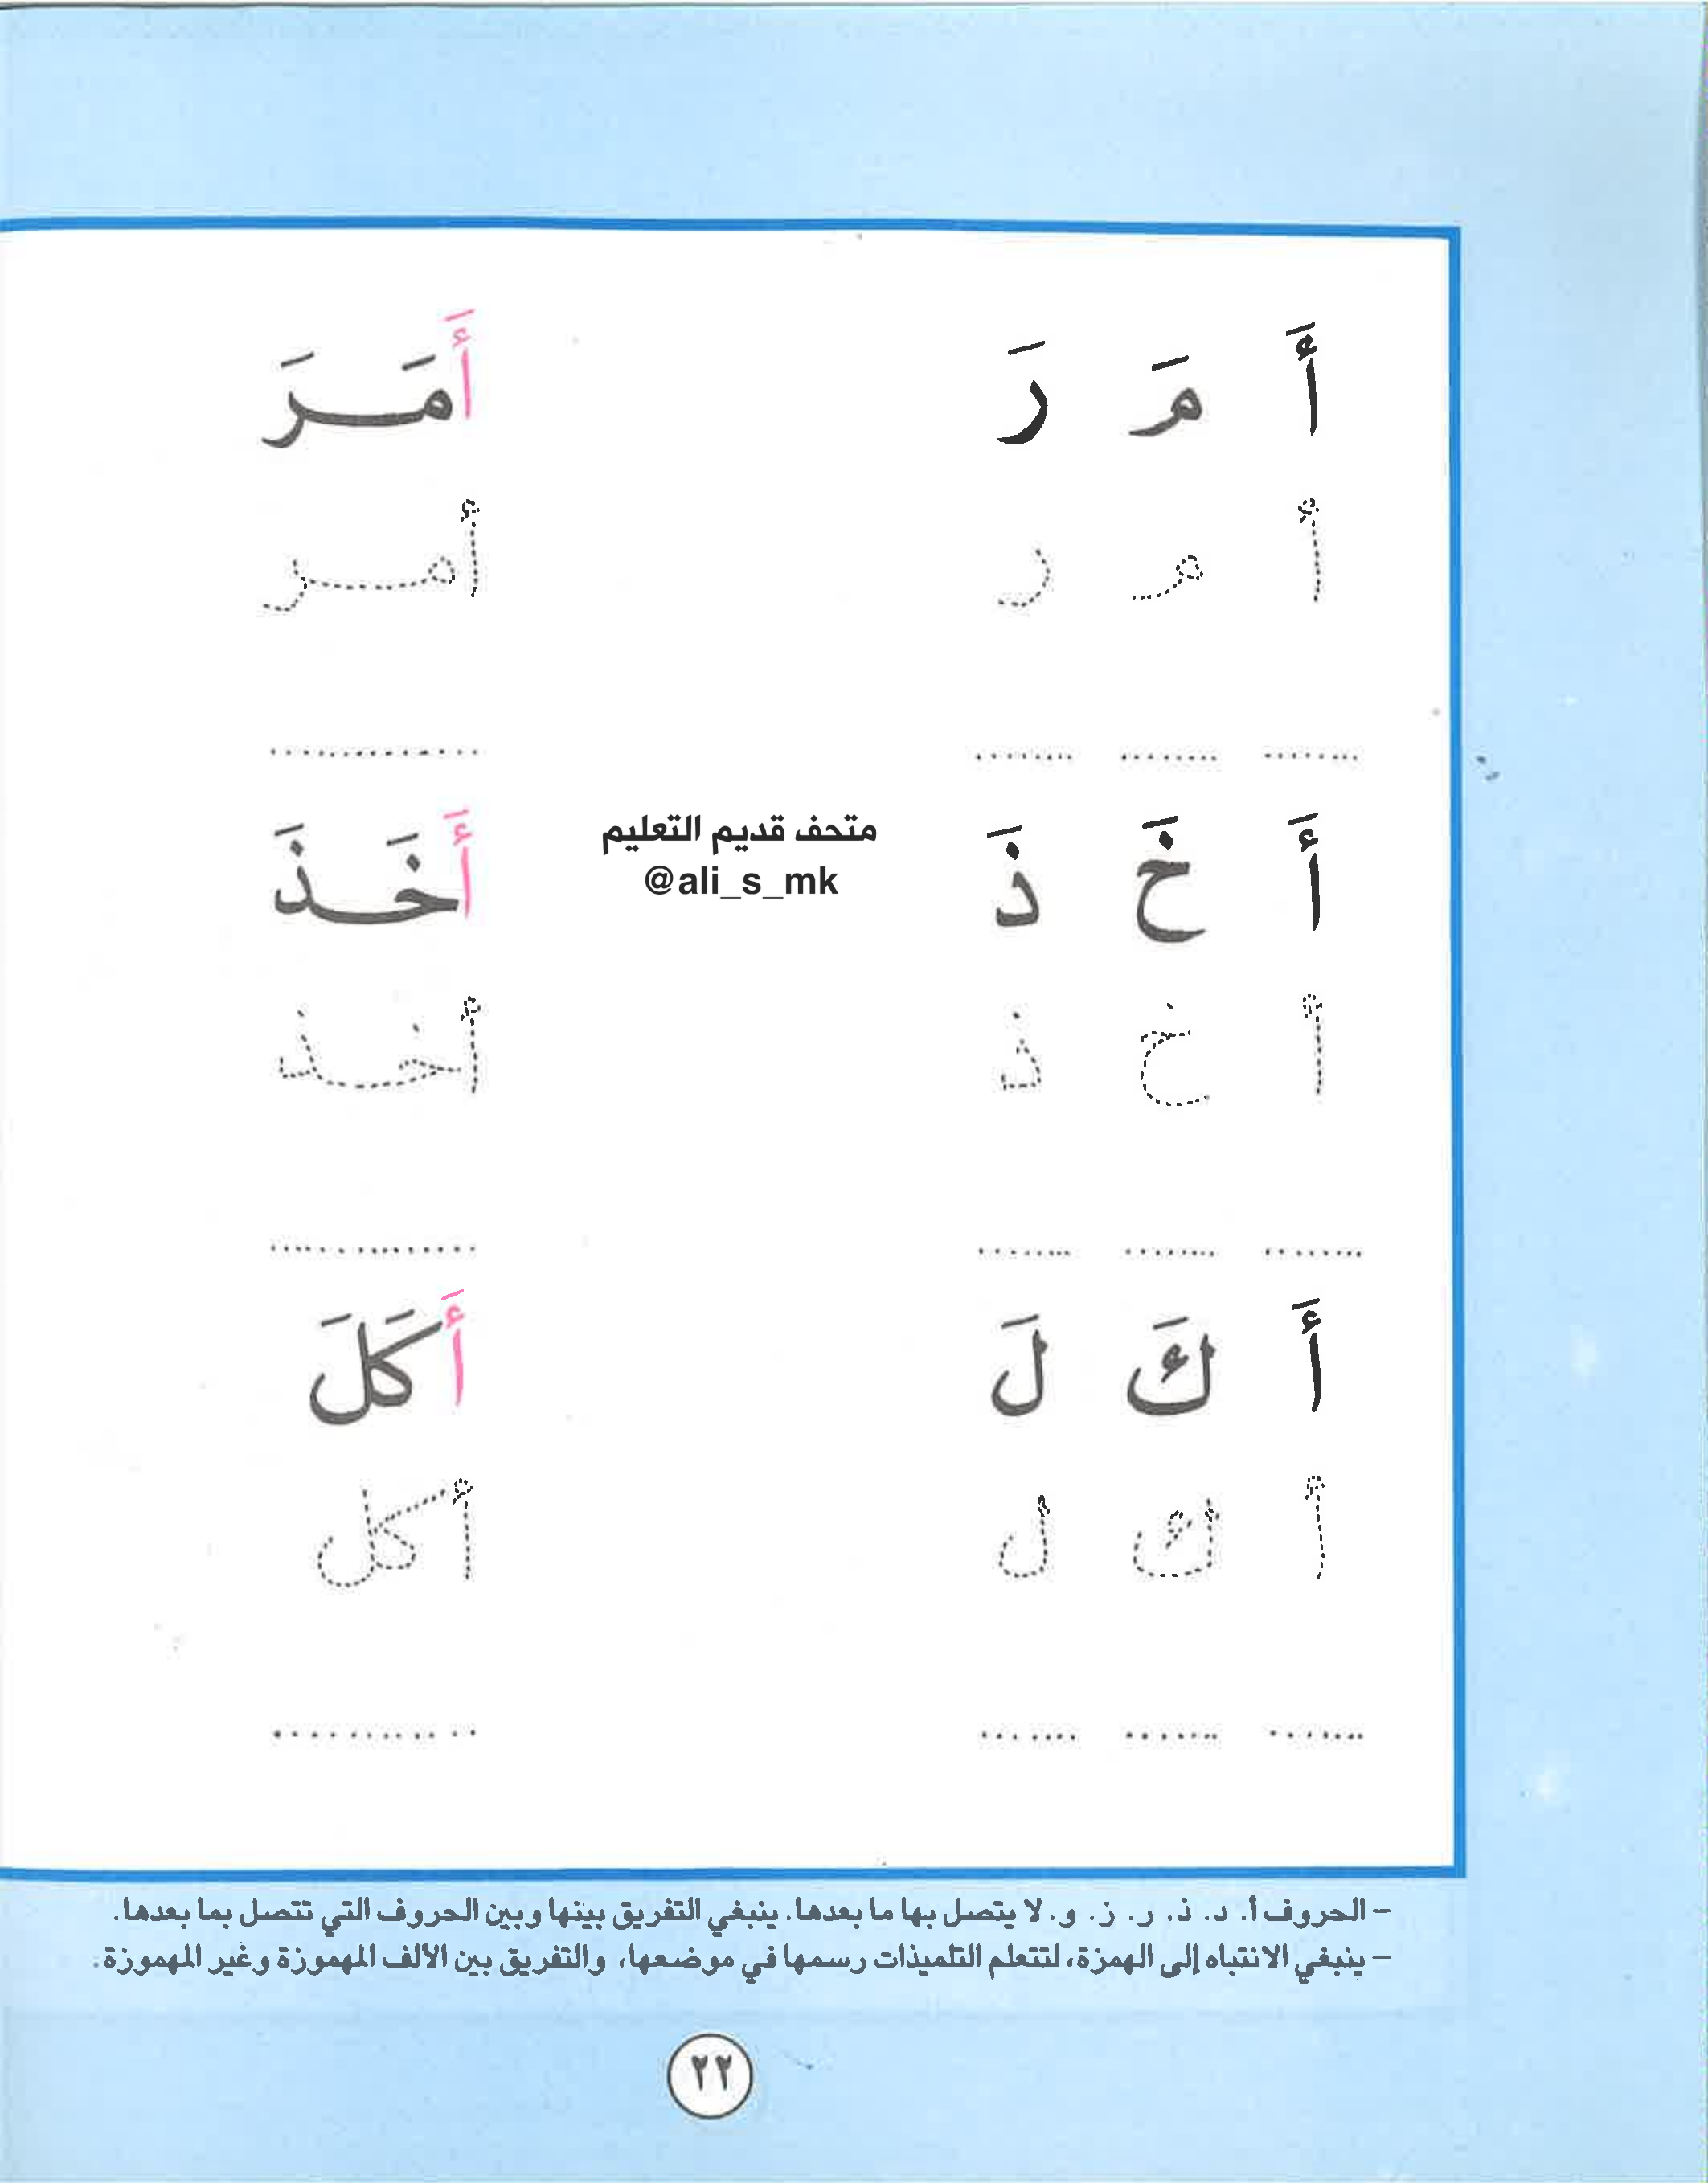 أَ مَ رَ أَمَرَ
أ مـ ر أمر
أَ خَ ذَ أَخَذَ
متحف قديم التعليم
@ali_s_mk
أ خ ذ أخذ
أَ كَ لَ أَكَلَ
أ ك ل أكل
– الحروف أ. د. ذ. ر. ز. و. لا يتصل بها ما بعدها. ينبغي التفريق بينها وبين الحروف التي تتصل بما بعدها.
– ينبغي الانتباه إلى الهمزة، لتتعلم التلميذات رسمها في موضعها، والتفريق بين الألف المهموزة وغير المهموزة.
٢٢